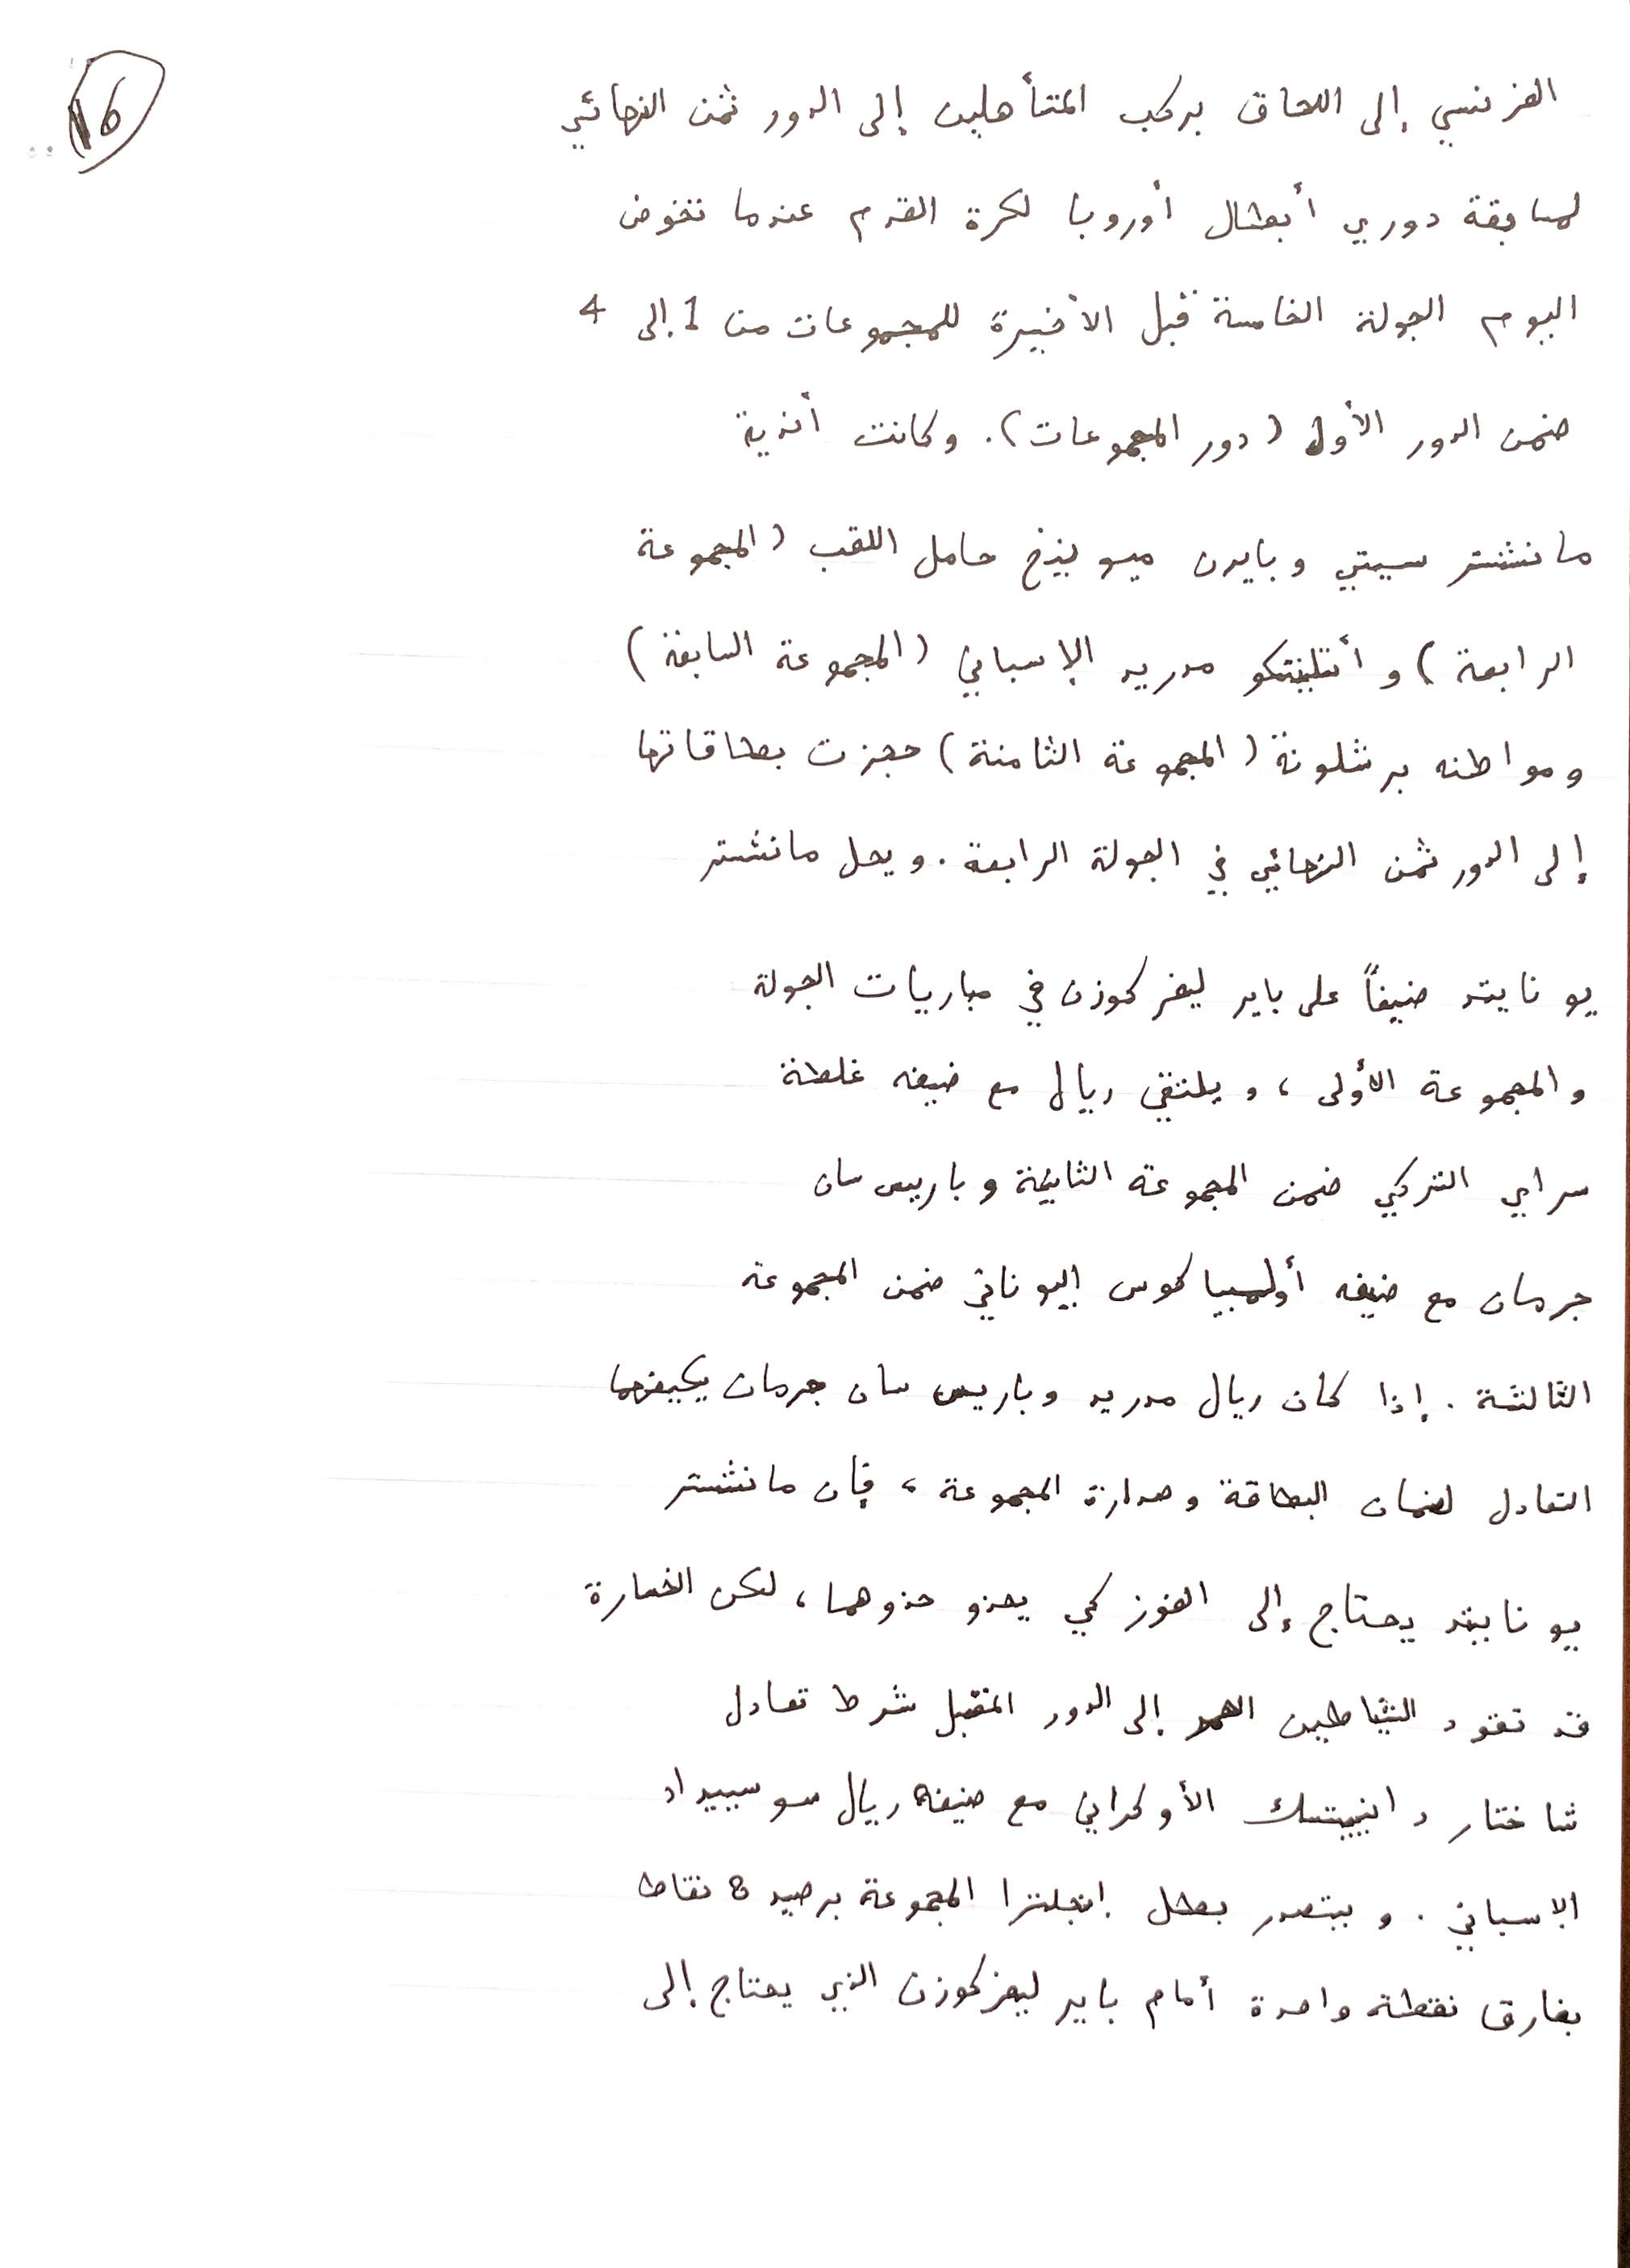 16
الفرنسي إلى اللحاق بركب المتأهلين إلى الدور ثمن النهائي
لمسابقة دوري أبطال أوروبا لكرة القدم عندما تخوض
اليوم الجولة الخامسة قبل الأخيرة للمجموعات من 1 إلى 4
ضمن الدور الأول (دور المجموعات). وكانت أندية
مانشستر سيتي وبايرن ميونيخ حامل اللقب (المجموعة
الرابعة) وأتلتيكو مدريد الإسباني (المجموعة السابعة)
ومواطنه برشلونة (المجموعة الثامنة) حجزت بطاقاتها
إلى الدور ثمن النهائي في الجولة الرابعة. ويحل مانشستر
يونايتد ضيفاً على باير ليفركوزن في مباريات الجولة
والمجموعة الأولى، ويلتقي ريال مع ضيفه غلطة
سراي التركي ضمن المجموعة الثانية وباريس سان
جرمان مع ضيفه أولمبياكوس اليوناني ضمن المجموعة
الثالثة. إذا كان ريال مدريد وباريس سان جرمان يكيفهما
التعادل لضمان البطاقة وصدارة المجموعة، فإن مانشستر
يونايتد يحتاج إلى الفوز كي يحذو حذوهما، لكن الخسارة
قد تقود الشياطين الحمر إلى الدور المقبل شرط تعادل
شاختار دانييتسك الأوكراني مع ضيفه ريال سوسييداد
الاسباني. ويتصدر بطل إنجلترا المجموعة برصيد 8 نقاط
بفارق نقطة واحدة أمام باير ليفركوزن الذي يحتاج إلى